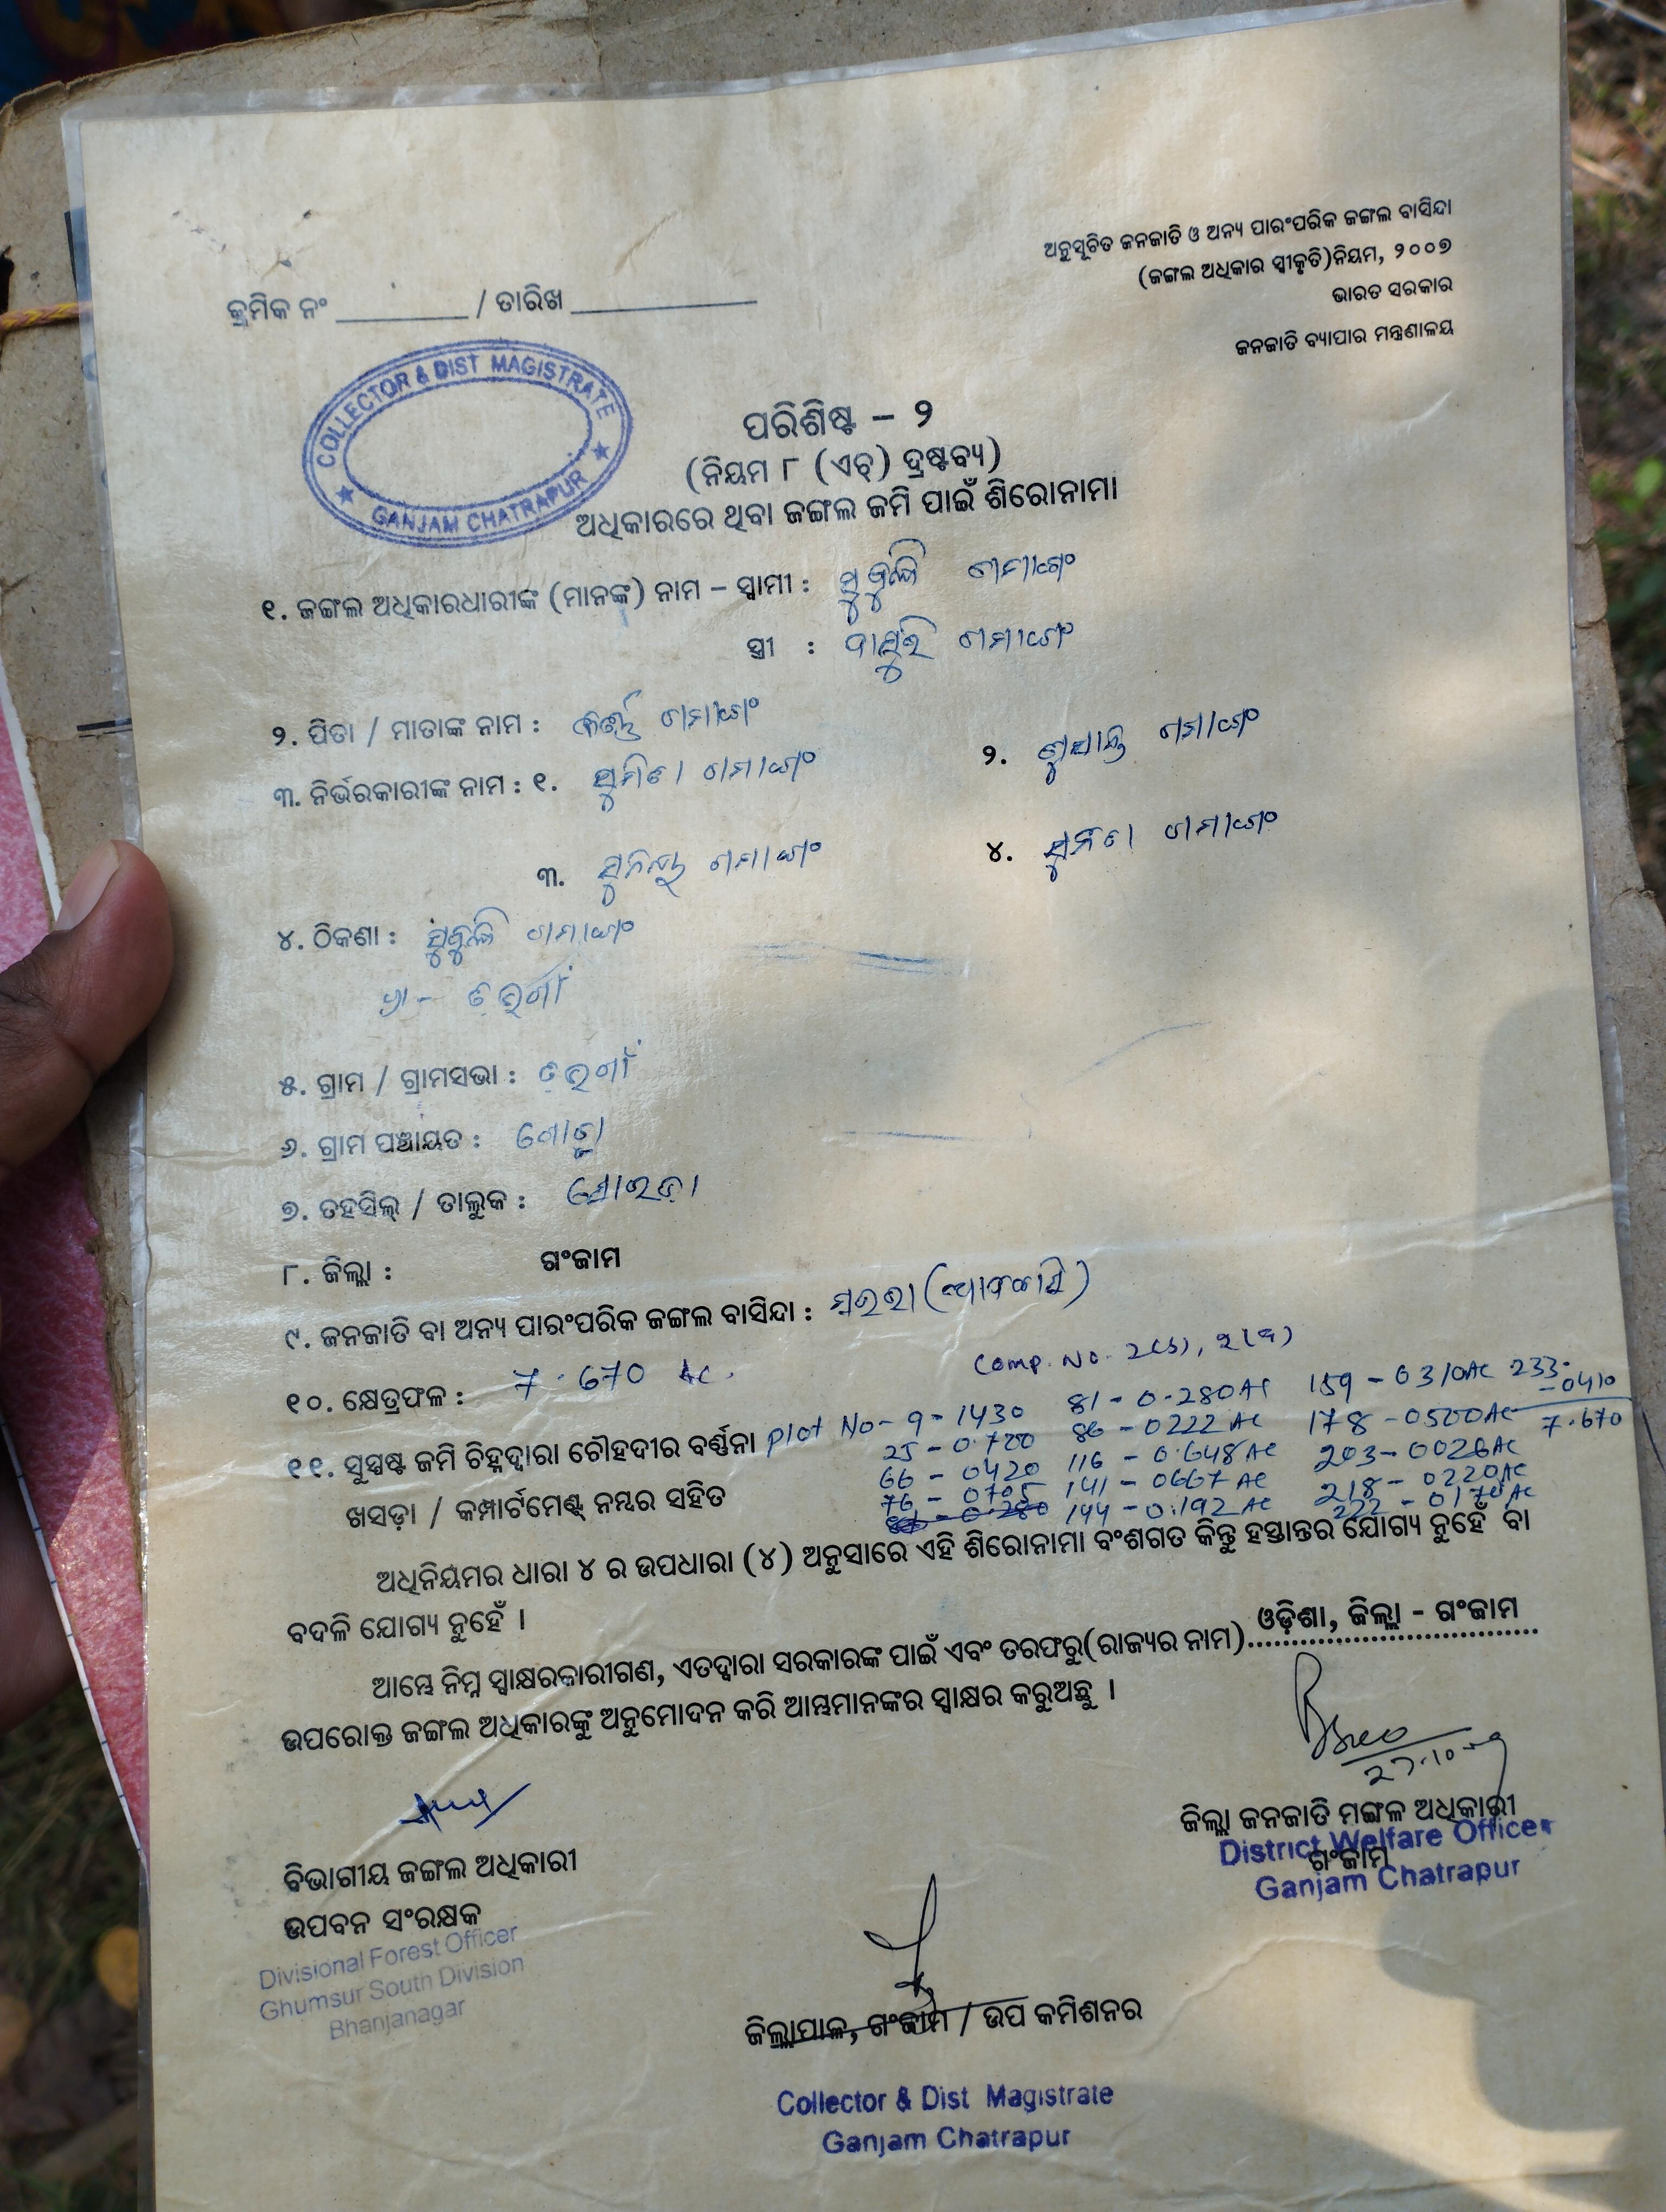 ଅନୁସୂଚିତ ଜନଜାତି ଓ ଅନ୍ୟ ପାରଂପରିକ ଜଙ୍ଗଲ ବାସିନ୍ଦା
(ଜଙ୍ଗଲ ଅଧିକାର ସ୍ୱୀକୃତି)ନିୟମ, ୨୦୦୭
ଭାରତ ସରକାର
ଜନଜାତି ବ୍ୟାପାର ମନ୍ତ୍ରଣାଳୟ
କ୍ରମିକ ନଂ ________ / ତାରିଖ ____________
COLLECTOR & DIST MAGISTRATE
GANJAM CHATRAPUR
ପରିଶିଷ୍ଟ – ୨
(ନିୟମ ୮ (ଏଚ୍) ଦ୍ରଷ୍ଟବ୍ୟ)
ଅଧିକାରରେ ଥିବା ଜଙ୍ଗଲ ଜମି ପାଇଁ ଶିରୋନାମା
୧. ଜଙ୍ଗଲ ଅଧିକାରଧାରୀଙ୍କ (ମାନଙ୍କ) ନାମ – ସ୍ୱାମୀ : ଗମାଙ୍ଗ
ସ୍ତ୍ରୀ : ଗମାଙ୍ଗ
୨. ପିତା / ମାତାଙ୍କ ନାମ : ଗମାଙ୍ଗ
୩. ନିର୍ଭରକାରୀଙ୍କ ନାମ : ୧. ଗମାଙ୍ଗ ୨. ଗମାଙ୍ଗ
୩. ଗମାଙ୍ଗ ୪. ଗମାଙ୍ଗ
୪. ଠିକଣା : ଗମାଙ୍ଗ
୫. ଗ୍ରାମ / ଗ୍ରାମସଭା :
୬. ଗ୍ରାମ ପଞ୍ଚାୟତ :
୭. ତହସିଲ୍ / ତାଲୁକ : ସୋରଡ଼ା
୮. ଜିଲ୍ଲା : ଗଂଜାମ
୯. ଜନଜାତି ବା ଅନ୍ୟ ପାରଂପରିକ ଜଙ୍ଗଲ ବାସିନ୍ଦା :
୧୦. କ୍ଷେତ୍ରଫଳ : 7.670 Ac. Comp. No.
୧୧. ସୁସ୍ପଷ୍ଟ ଜମି ଚିହ୍ନଦ୍ୱାରା ଚୌହଦୀର ବର୍ଣ୍ଣନା Plot No - 9 - 1430 81 - 0.280 AC 159 - 0310AC 233 - 0410
25 - 0.700 86 - 0222 AC 178 - 0500AC 7.670
66 - 0420 116 - 0.648 AC 203 - 0026AC
ଖସଡ଼ା / କମ୍ପାର୍ଟମେଣ୍ଟ୍ ନମ୍ବର ସହିତ 76 - 0705 141 - 0667 AC 218 - 0220AC
144 - 0.192 AC 222 - 0170AC
ଅଧିନିୟମର ଧାରା ୪ ର ଉପଧାରା (୪) ଅନୁସାରେ ଏହି ଶିରୋନାମା ବଂଶଗତ କିନ୍ତୁ ହସ୍ତାନ୍ତର ଯୋଗ୍ୟ ନୁହେଁ ବା
ବଦଳି ଯୋଗ୍ୟ ନୁହେଁ ।
ଆମ୍ଭେ ନିମ୍ନ ସ୍ୱାକ୍ଷରକାରୀଗଣ, ଏତଦ୍ୱାରା ସରକାରଙ୍କ ପାଇଁ ଏବଂ ତରଫରୁ(ରାଜ୍ୟର ନାମ) ଓଡ଼ିଶା, ଜିଲ୍ଲା - ଗଂଜାମ
ଉପରୋକ୍ତ ଜଙ୍ଗଲ ଅଧିକାରଙ୍କୁ ଅନୁମୋଦନ କରି ଆମ୍ଭମାନଙ୍କର ସ୍ୱାକ୍ଷର କରୁଅଛୁ ।
ଜିଲ୍ଲା ଜନଜାତି ମଙ୍ଗଳ ଅଧିକାରୀ
ଗଂଜାମ
District Welfare Officer
Ganjam Chatrapur
ବିଭାଗୀୟ ଜଙ୍ଗଲ ଅଧିକାରୀ
ଉପବନ ସଂରକ୍ଷକ
Divisional Forest Officer
Ghumsur South Division
Bhanjanagar
ଜିଲ୍ଲାପାଳ, ଗଂଜାମ / ଉପ କମିଶନର
Collector & Dist Magistrate
Ganjam Chatrapur